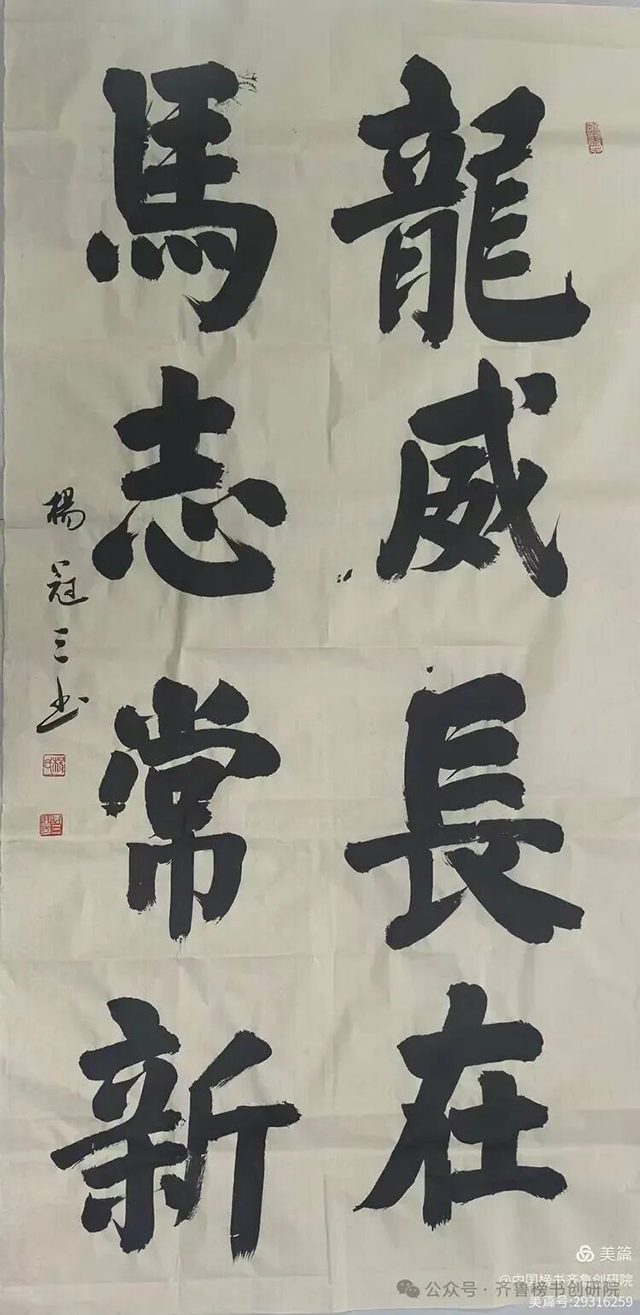 龍威長在
馬志常新
楊冠三书
美篇
@中国榜书齐鲁创研院
公众号·齐鲁榜书创研院
美篇号:29316259